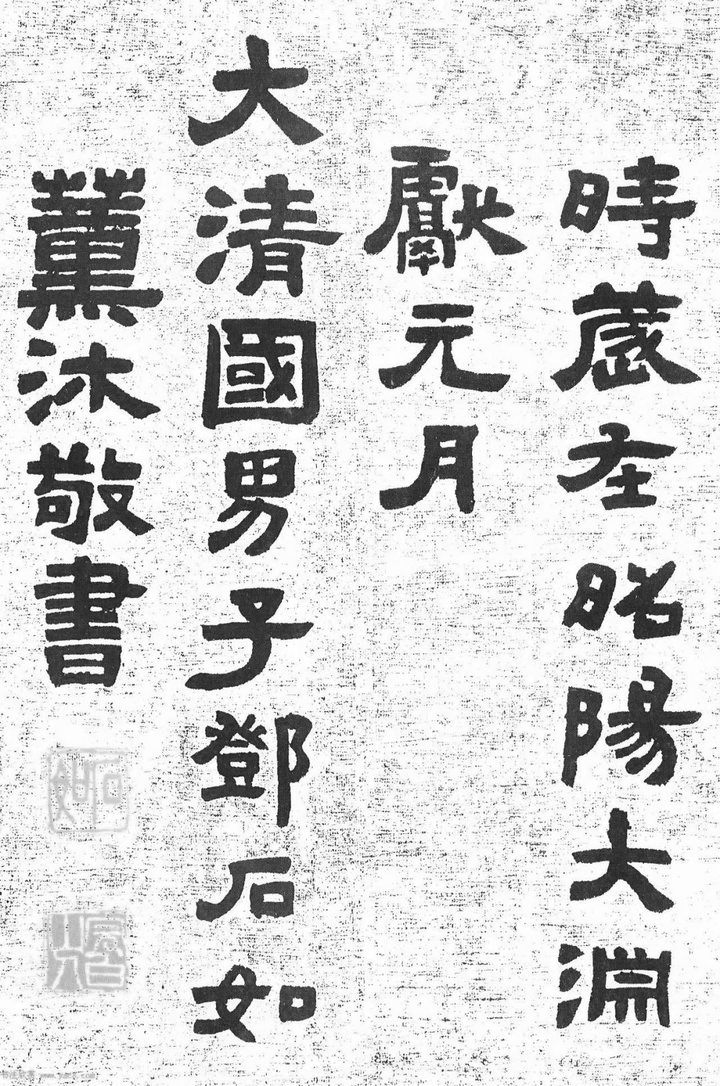 時歲在昭陽大淵
獻元月
大清國男子鄧石如
薰沐敬書
石如